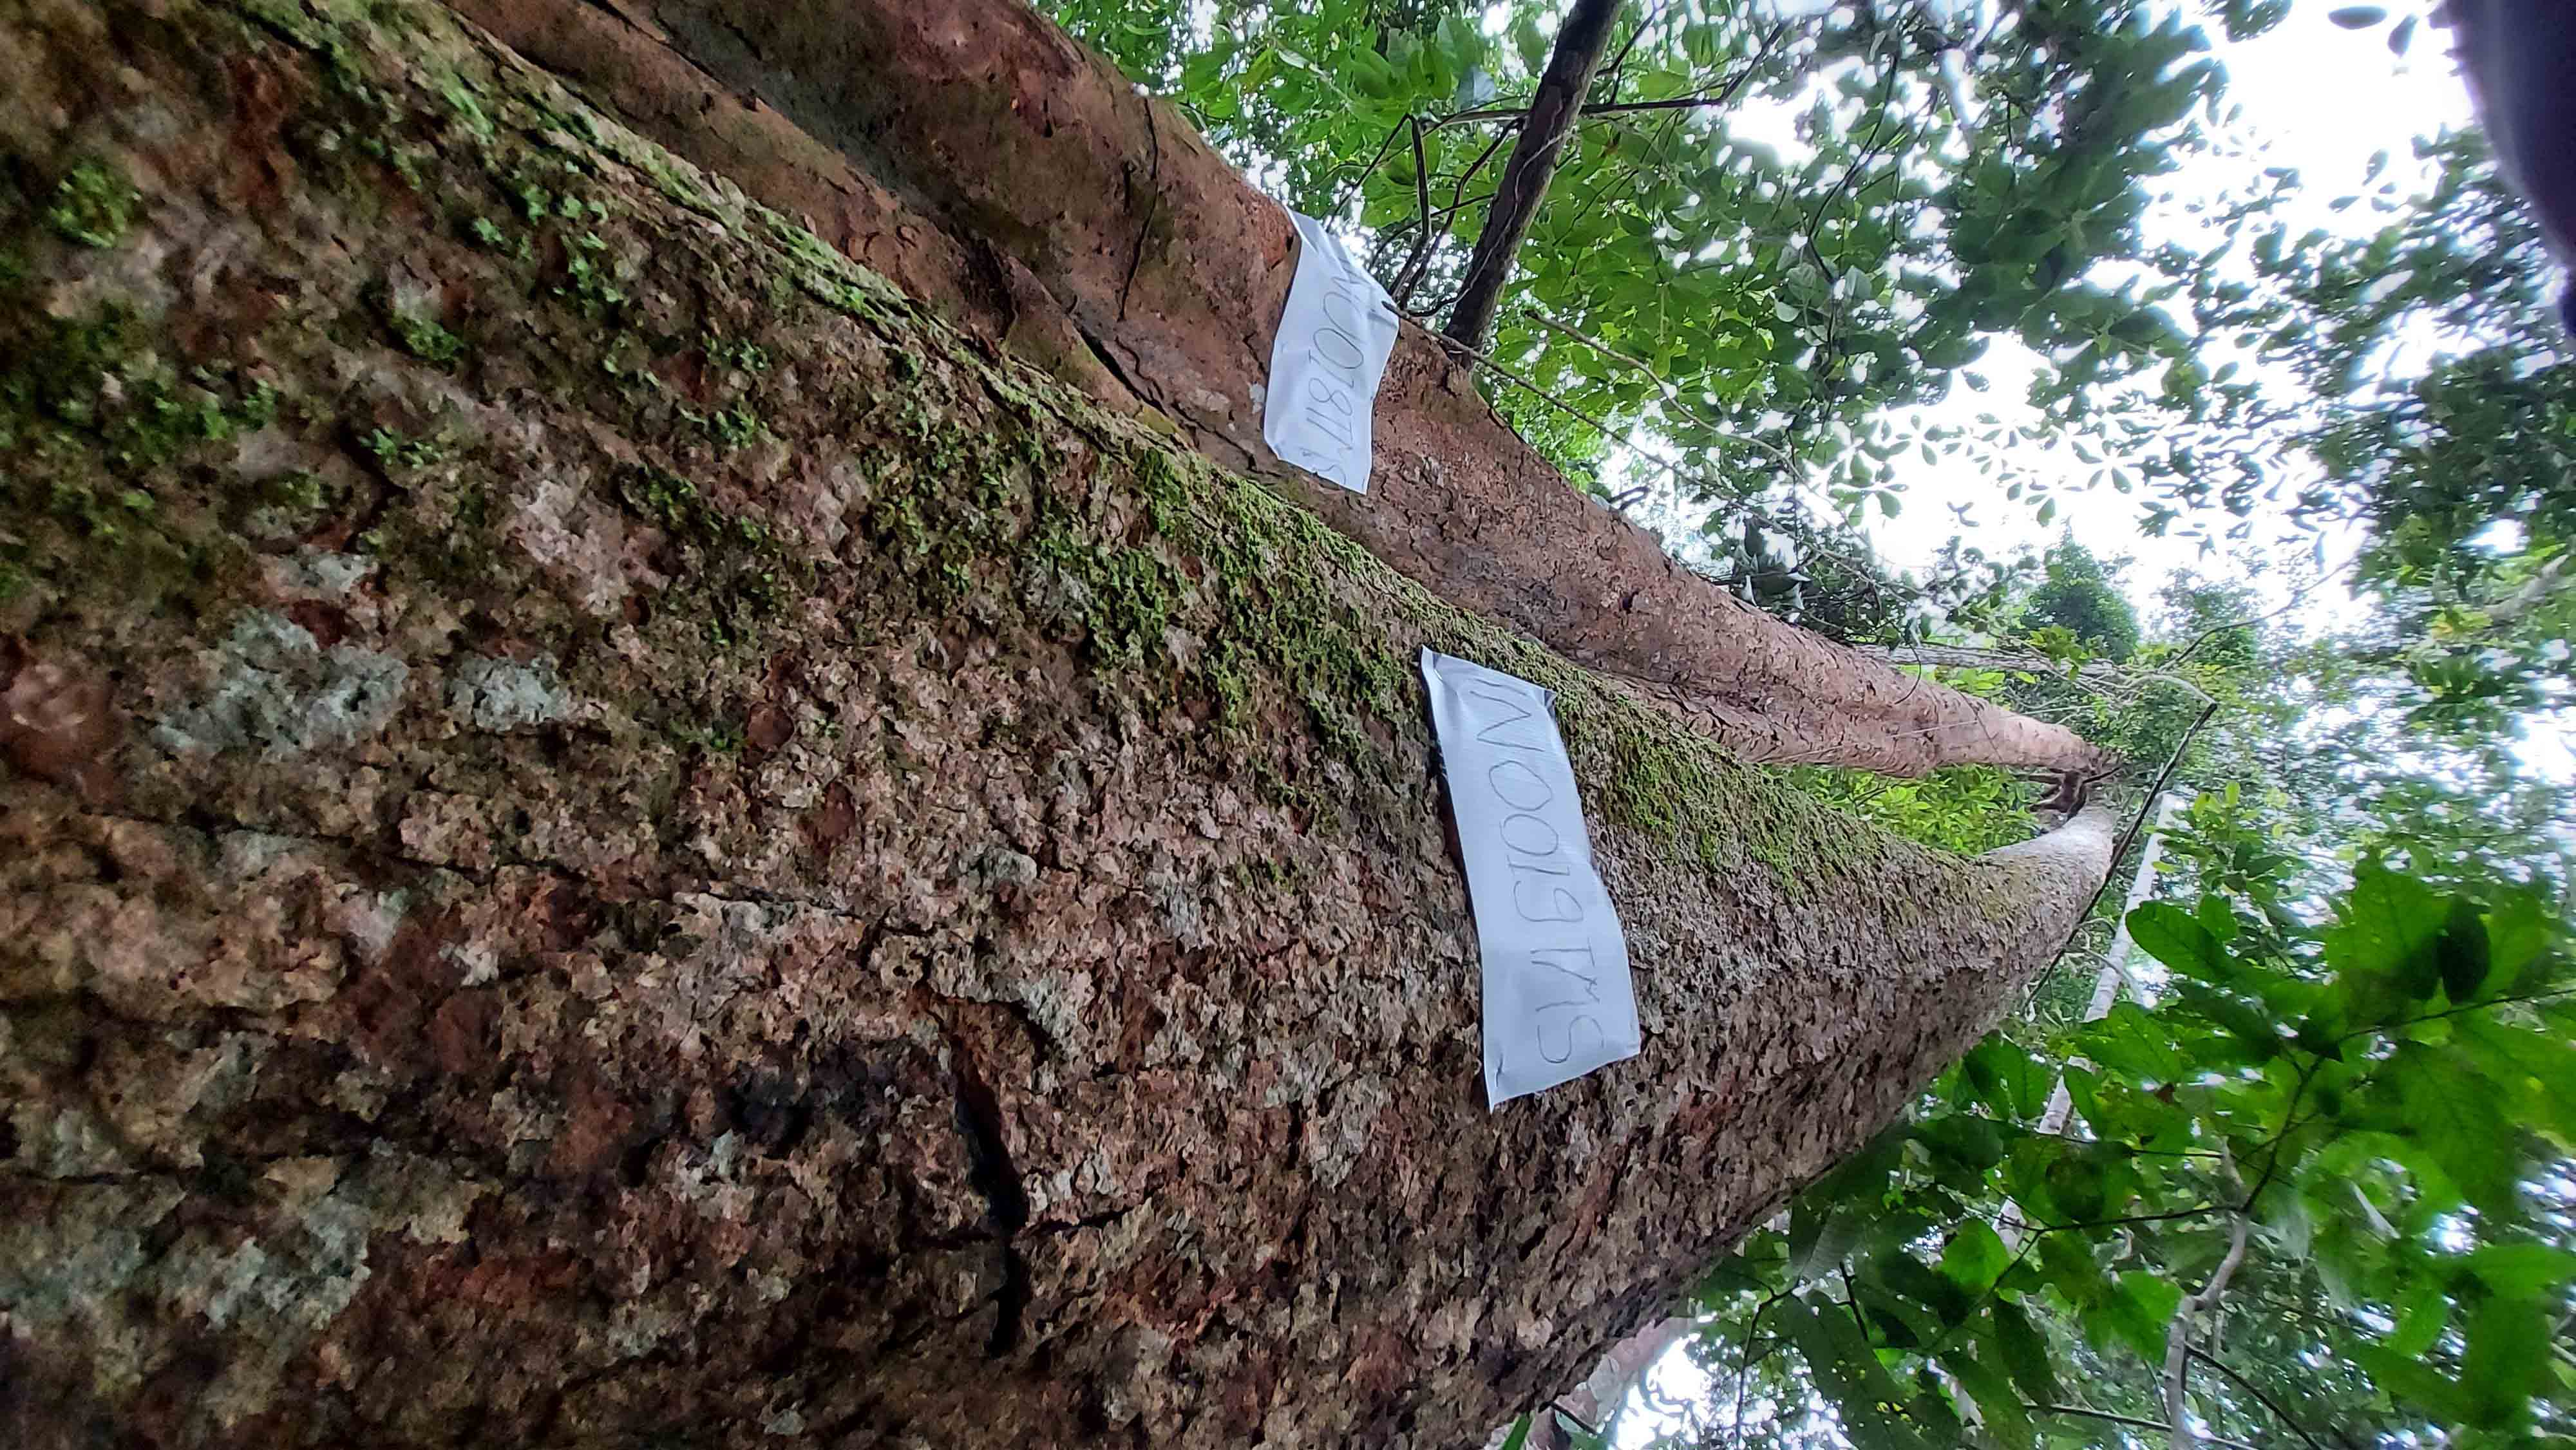 IN0018TMS
IN0019TMS